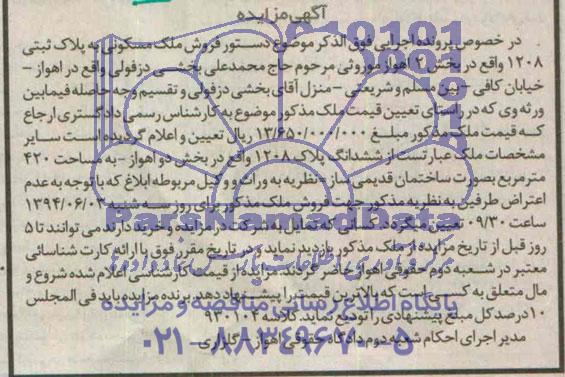 آگهی مزایده
در خصوص پرونده اجرایی فوق الذکر موضوع دستور فروش ملک مسکونی به پلاک ثبتی
۱۲۰۸ واقع در بخش ۲ اهواز موروثی مرحوم حاج محمدعلی بخشی دزفولی واقع در اهواز -
خیابان کافی - بین مسلم و شریعتی - منزل آقای بخشی دزفولی و تقسیم وجه حاصله فیمابین
ورثه وی که در راستای تعیین قیمت ملک مذکور موضوع به کارشناس رسمی دادگستری ارجاع
که قیمت ملک مذکور مبلغ ۱۳/۶۵۰/۰۰۰/۰۰۰ ریال تعیین و اعلام گردیده است سایر
مشخصات ملک عبارتست از ششدانگ پلاک ۱۲۰۸ واقع در بخش دو اهواز - به مساحت ۴۲۰
مترمربع بصورت ساختمان قدیمی ساز - نظریه به وراث و وکیل مربوطه ابلاغ که با توجه به عدم
اعتراض طرفین به نظریه مذکور جهت فروش ملک مذکور برای روز سه شنبه ۱۳۹۴/۰۶/۰۳
ساعت ۰۹/۳۰ تعیین میگردد کسانی که تمایل به شرکت در مزایده و خرید دارند می توانند تا ۵
روز قبل از تاریخ مزایده از ملک مذکور بازدید نمایند و در تاریخ مقرر فوق با ارائه کارت شناسائی
معتبر در شعبه دوم حقوقی اهواز حاضر گردند مزایده از قیمت کارشناسی اعلام شده شروع و
مال متعلق به کسی است که بالاترین قیمت را پیشنهاد دهد برنده مزایده باید فی المجلس
۱۰ درصد کل مبلغ پیشنهادی را تودیع نماید. کلاسه ۹۳۰۱۰۴
مدیر اجرای احکام شعبه دوم دادگاه حقوقی اهواز - گلزاری
ParsNamadData
پایگاه اطلاع رسانی مناقصه و مزایده
۰۲۱-۸۸۳۴۹۶۷۰-۵